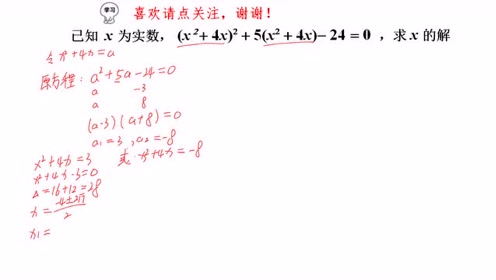 学习 喜欢请点关注，谢谢！
已知 x 为实数，(x²+4x)²+5(x²+4x)−24=0，求 x 的解
令 x²+4x=a
原方程：a²+5a-24=0
a -3
a 8
(a-3)(a+8)=0
a₁=3，a₂=-8
x²+4x=3 或 x²+4x=-8
x²+4x-3=0
Δ=16+12=28
x=(-4±2√7)/2
x₁=